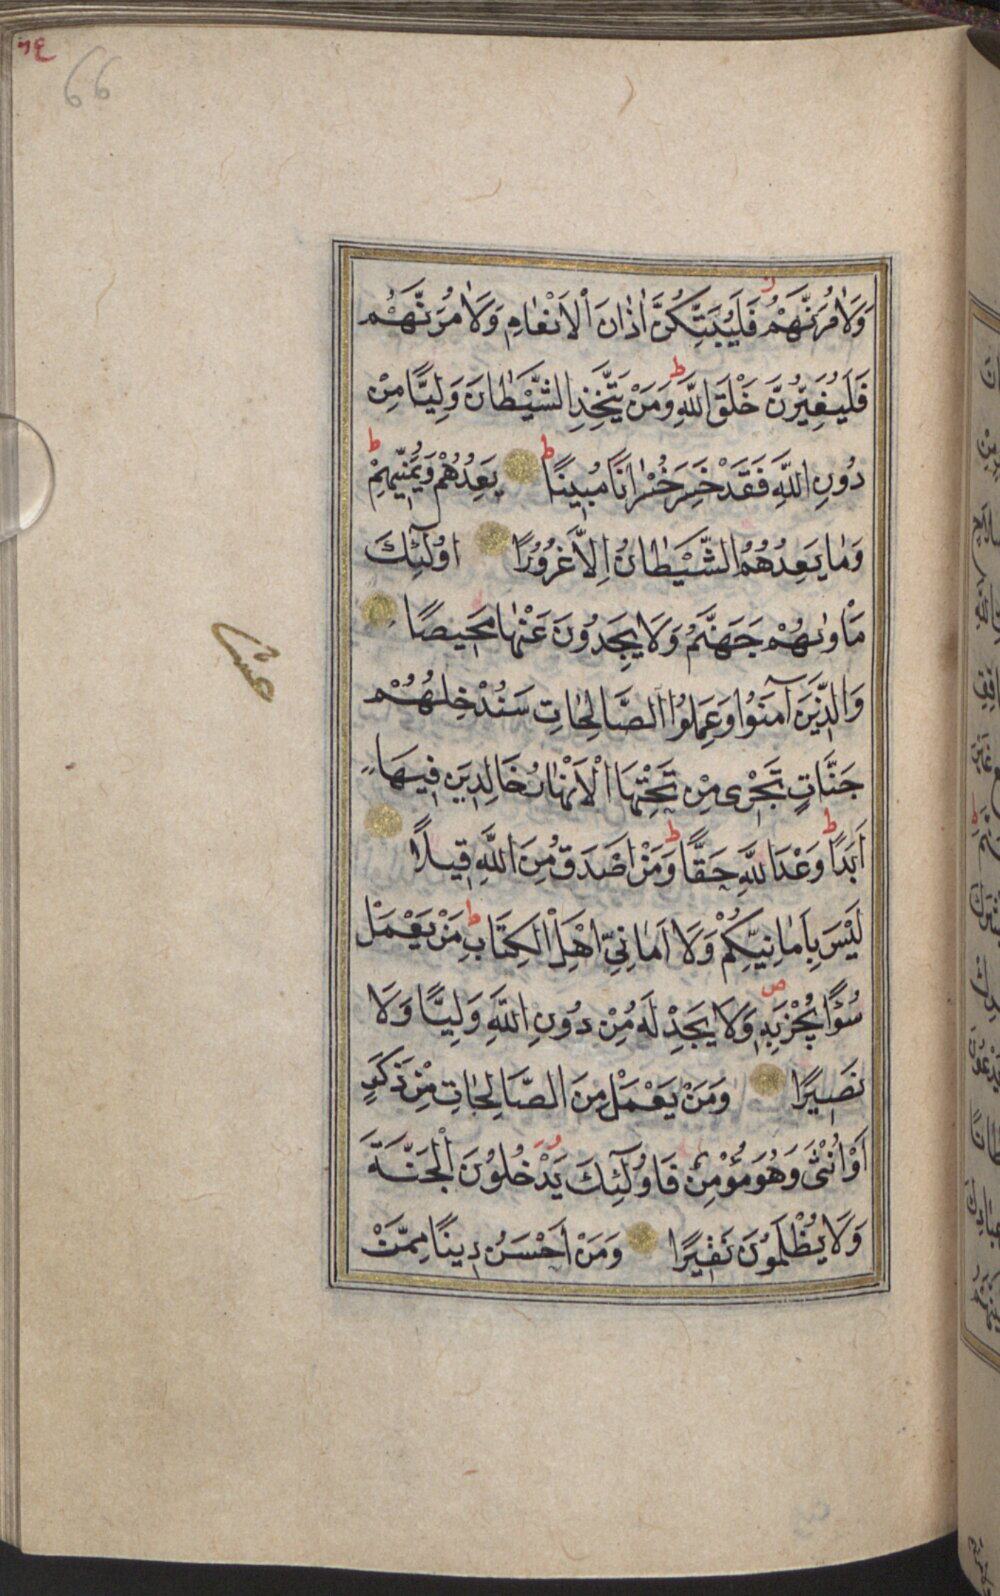 ٦٤
66
وَلَاٰمُرَنَّهُمْ فَلَيُبَتِّكُنَّ اٰذَانَ الْاَنْعَامِ وَلَاٰمُرَنَّهُمْ
فَلَيُغَيِّرُنَّ خَلْقَ اللّٰهِ ط وَمَنْ يَتَّخِذِ الشَّيْطَانَ وَلِيًّا مِنْ
دُونِ اللّٰهِ فَقَدْ خَسِرَ خُسْرَانًا مُبِينًا ط يَعِدُهُمْ وَيُمَنِّيهِمْ ط
وَمَا يَعِدُهُمُ الشَّيْطَانُ اِلَّا غُرُورًا اُولٰٓئِكَ
مَاْوٰيهُمْ جَهَنَّمُ وَلَا يَجِدُونَ عَنْهَا مَحِيصًا
وَالَّذِينَ آمَنُوا وَعَمِلُوا الصَّالِحَاتِ سَنُدْخِلُهُمْ
جَنَّاتٍ تَجْرِى مِنْ تَحْتِهَا الْاَنْهَارُ خَالِدِينَ فِيهَا
اَبَدًا ط وَعْدَ اللّٰهِ حَقًّا ط وَمَنْ اَصْدَقُ مِنَ اللّٰهِ قِيلًا
لَيْسَ بِاَمَانِيِّكُمْ وَلَا اَمَانِيِّ اَهْلِ الْكِتَابِ ط مَنْ يَعْمَلْ
سُوٓءًا يُجْزَ بِهِ ص وَلَا يَجِدْ لَهُ مِنْ دُونِ اللّٰهِ وَلِيًّا وَلَا
نَصِيرًا وَمَنْ يَعْمَلْ مِنَ الصَّالِحَاتِ مِنْ ذَكَرٍ
اَوْ اُنْثٰى وَهُوَ مُؤْمِنٌ فَاُولٰٓئِكَ يَدْخُلُونَ الْجَنَّةَ
وَلَا يُظْلَمُونَ نَقِيرًا وَمَنْ اَحْسَنُ دِينًا مِمَّنْ
عشر